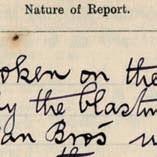 Nature of Report.
oken on the
by the blastin
an Bros
the